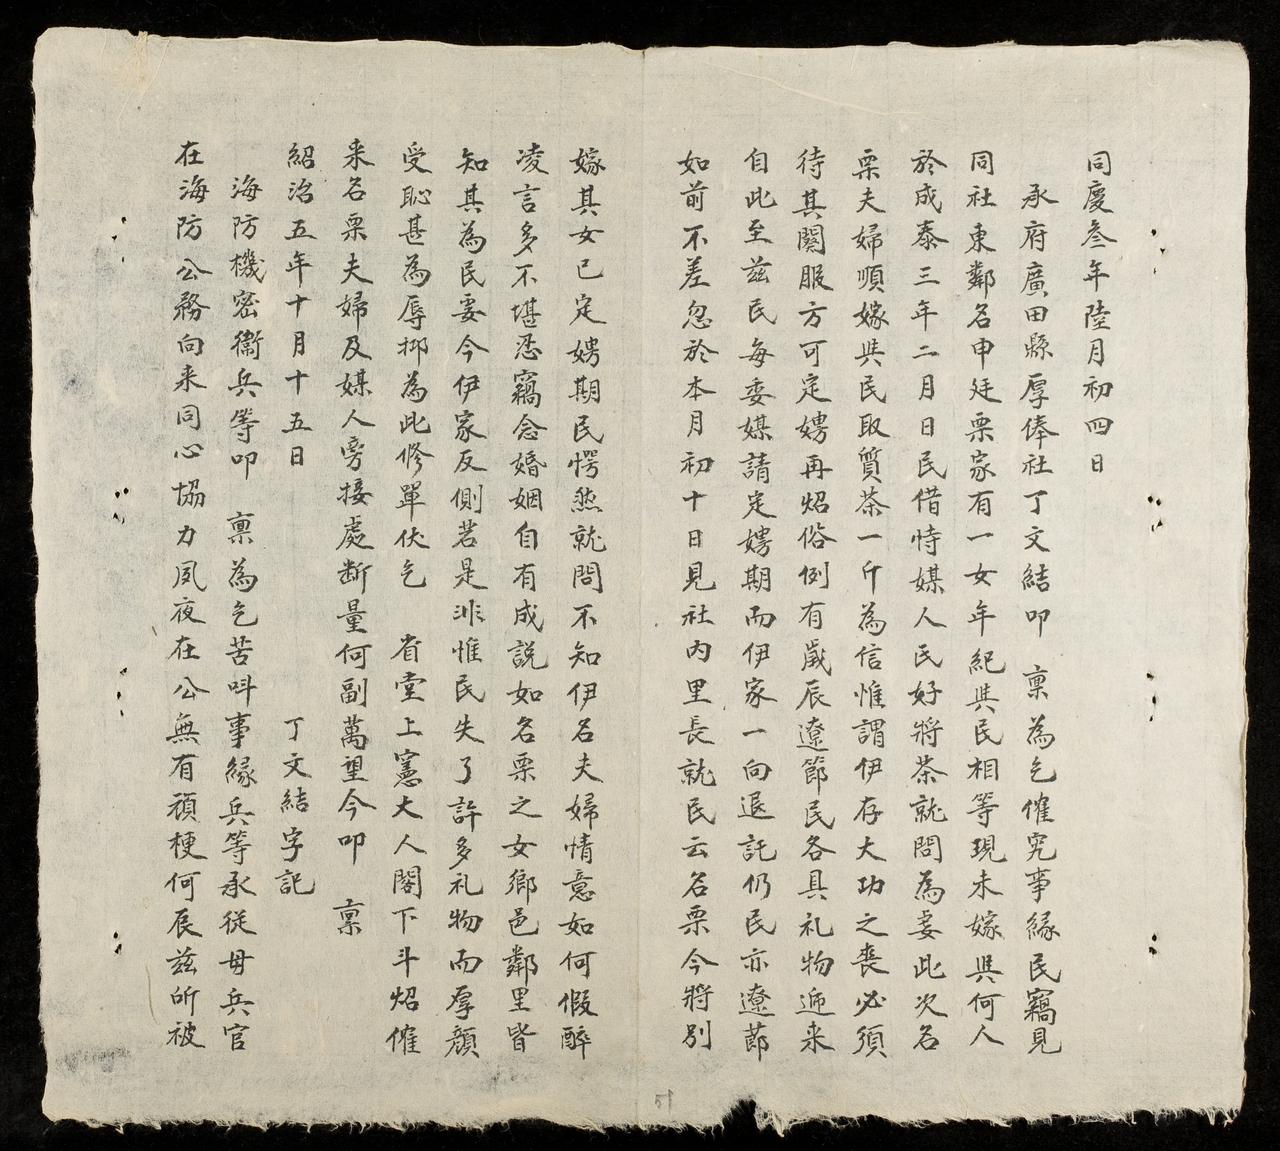 同慶叁年陸月初四日
承府廣田縣厚俸社丁文結叩　稟為乞催究事緣民竊見
同社東鄰名申廷栗家有一女年紀與民相等現未嫁與何人
於成泰三年二月日民借恃媒人民好將茶就問為妾此次名
栗夫婦順嫁與民取質茶一斤為信惟謂伊存大功之喪必須
待其闋服方可定娉再炤俗例有歲辰遼節民各具礼物遞来
自此至茲民每委媒請定娉期而伊家一向退託仍民亦遼節
如前不差忽於本月初十日見社内里長就民云名栗今將別
嫁其女已定娉期民愕然就問不知伊名夫婦情意如何假醉
凌言多不堪恶竊念婚姻自有成説如名栗之女鄉邑鄰里皆
知其為民妾今伊家反側若是非惟民失了許多礼物而厚顏
受恥甚為辱挪為此修單伏乞　省堂上憲大人閣下斗炤催
来名栗夫婦及媒人旁接處断量何副萬望今叩　稟
紹治五年十月十五日　丁文結字記
海防機密衛兵等叩　稟為乞苦呌事緣兵等承従毌兵官
在海防公務向来同心協力夙夜在公無有頑梗何辰茲所被